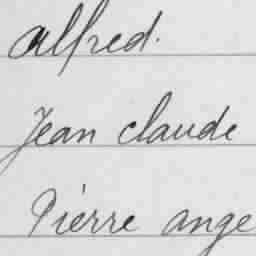 alfred.
Jean claude
Pièrre ange